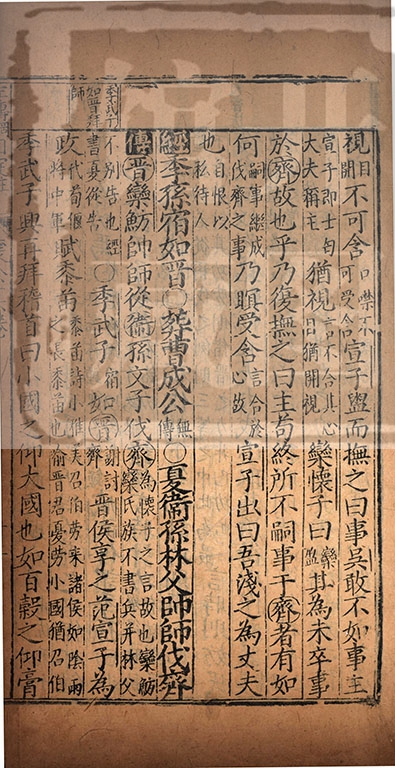 視目開不可含口噤不可受含宣子盥而撫之曰事吳敢不如事主
宣子即士匄大夫稱主猶視欒懷子曰欒盈其為未卒事
於齊故也乎乃復撫之曰主苟終所不嗣事于齊者有如
何嗣事繼成伐齊之事乃瞑受含言合於心故宣子出曰吾淺之為丈夫
也自恨以私待人
經季孫宿如晉○葬曹成公無傳○夏衛孫林父帥師伐齊
傳晉欒魴帥師從衛孫文子伐齊為懷子之言故也欒魴欒氏族不書兵并林父
季武子如晉拜師
不別告也經書夏從告○季武子宿如晉謝討齊晉侯享之范宣子為
政代荀偃將中軍賦黍苗黍苗詩小雅美召伯勞來諸侯如陰雨之長黍苗也喻晉君憂勞小國猶召伯
季武子興再拜稽首曰小國之仰大國也如百穀之仰膏